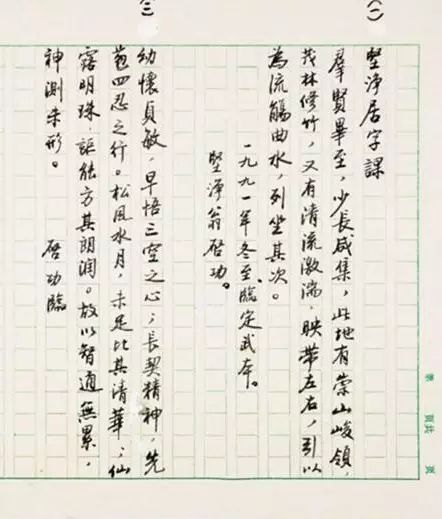 (一)
堅淨居字課
羣賢畢至,少長咸集,此地有崇山峻領,
茂林修竹,又有清流激湍,映帶左右,引以
為流觴曲水,列坐其次。
一九九一年冬至,臨定武本。
堅淨翁啓功。
(三)
幼懷貞敏,早悟三空之心;長契精神,先
苞四忍之行。松風水月,未足比其清華;仙
露明珠,詎能方其朗潤。故以智通無累,
神測未形。 啓功臨